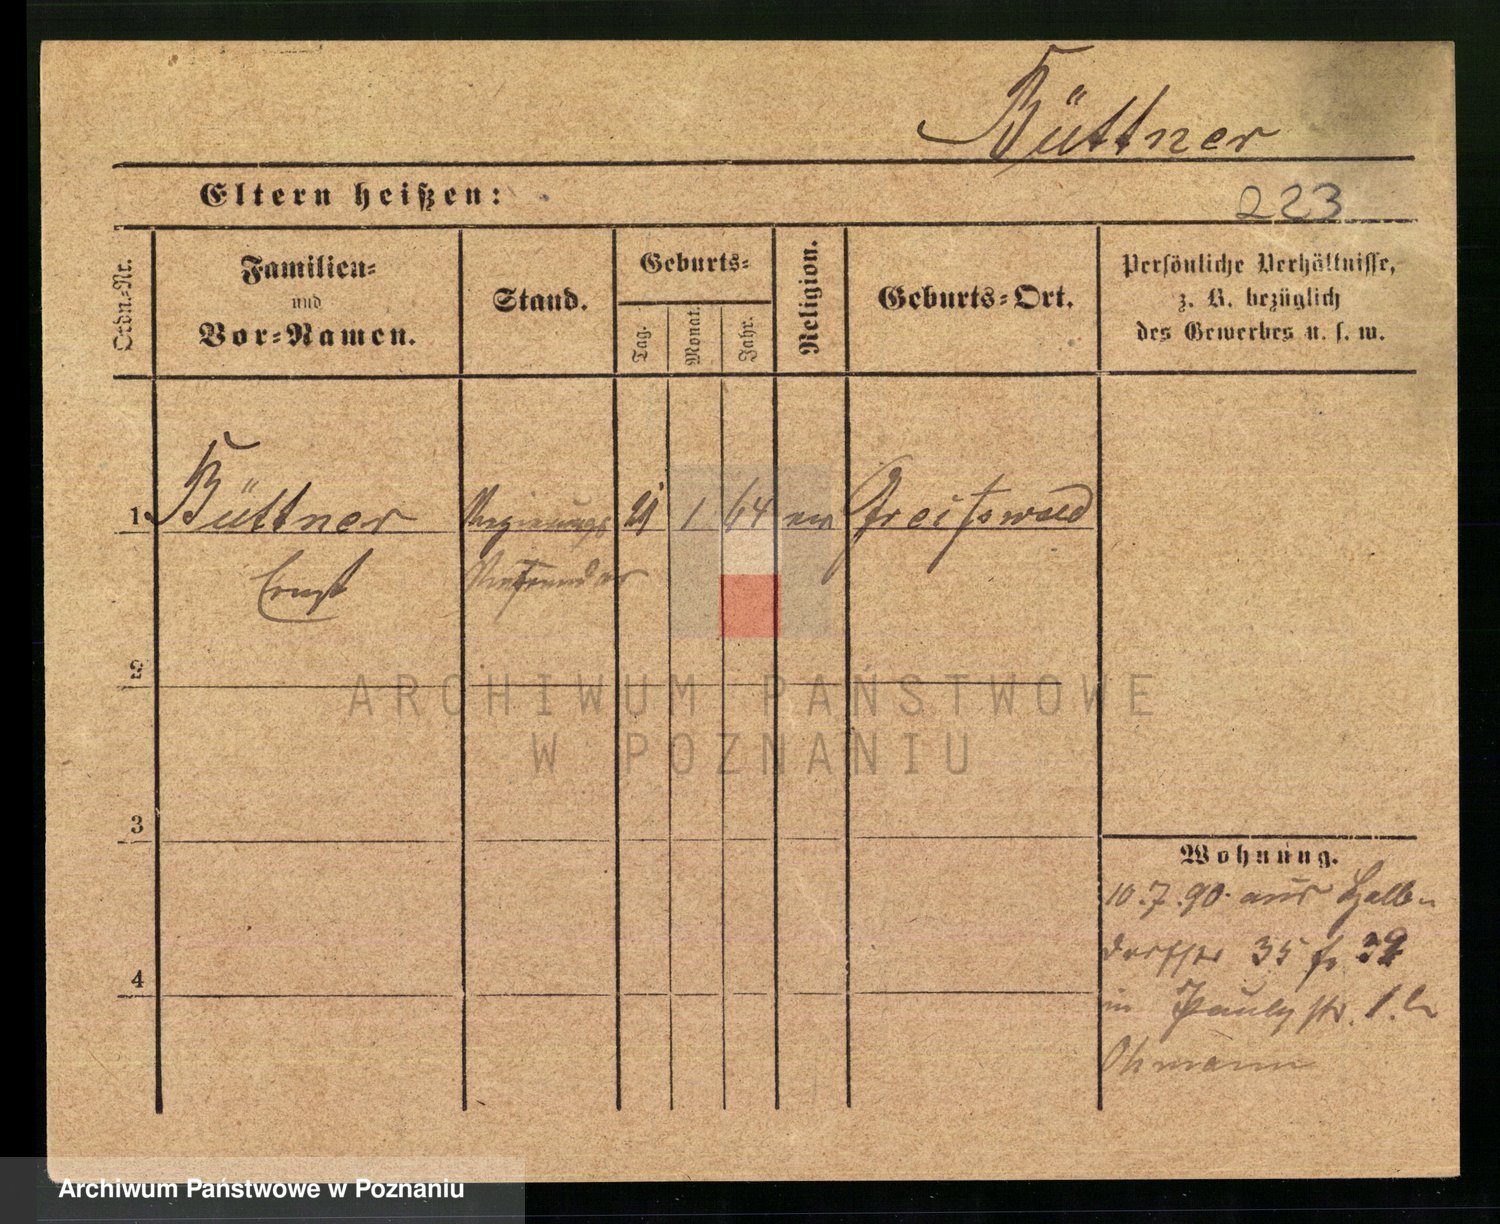 Büttner
Eltern heißen:
223
Ordn.-Nr.
Familien-
und
Vor-Namen.
Stand.
Geburts-
Tag.
Monat.
Jahr.
Religion.
Geburts-Ort.
Persönliche Verhältnisse,
z. B. bezüglich
des Gewerbes u. s. w.
1 Büttner Regierungs 21 1 64 ev Greifswald
Ernst Referendar
2
ARCHIWUM PAŃSTWOWE
W POZNANIU
3
Wohnung.
10.7.90. aus
35
4
in Pauly str. 1. b
Ohmann
Archiwum Państwowe w Poznaniu